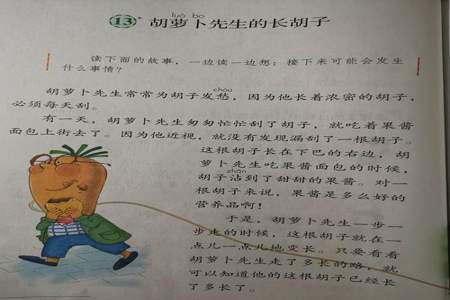 luó bo
13* 胡萝卜先生的长胡子
读下面的故事，一边读一边想：接下来可能会发生
什么事情？
chóu
胡萝卜先生常常为胡子发愁，因为他长着浓密的胡子，
必须每天刮。
有一天，胡萝卜先生匆匆忙忙刮了胡子，就吃着果酱
面包上街去了。因为他近视，就没有发现漏刮了一根胡子。
这根胡子长在下巴的右边，胡
萝卜先生吃果酱面包的时候，
zhān
胡子沾到了甜甜的果酱。对一
根胡子来说，果酱是多么好的
营养品啊！
于是，胡萝卜先生一步一
步走的时候，这根胡子就在一
点儿一点儿地变长。只要看看
胡萝卜先生走了多长的路，就
可以知道他的这根胡子已经长
了多长了。